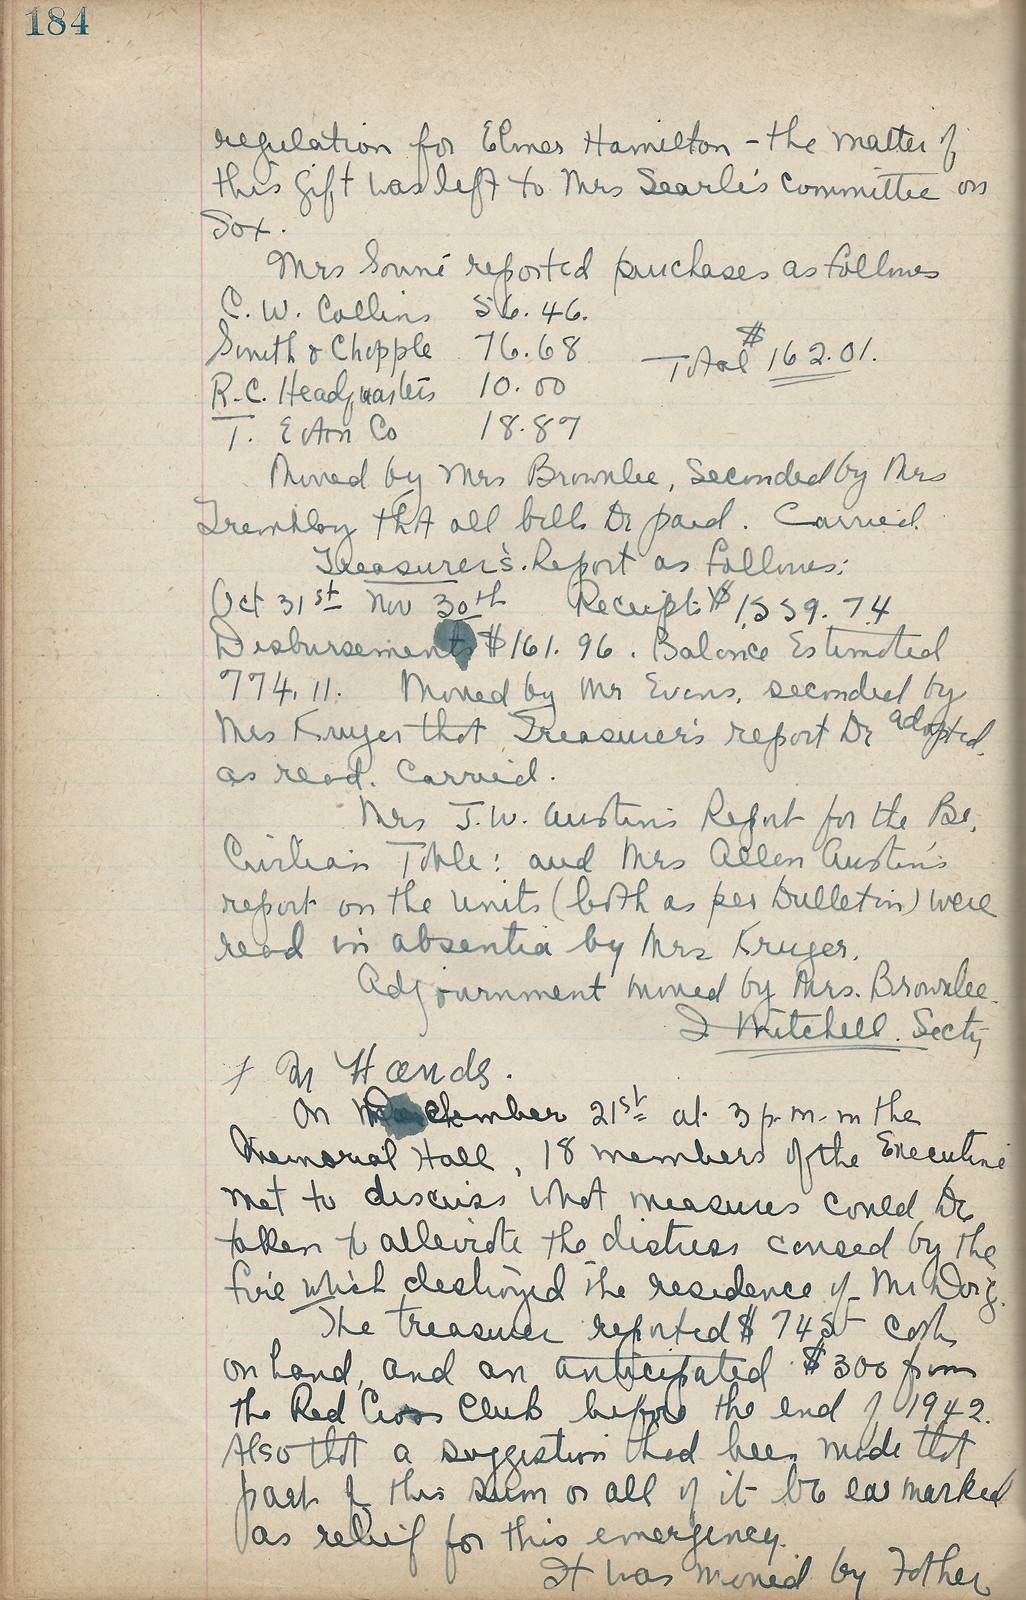 184
regulation for Elmer Hamilton - the matter of
this gift was left to Mrs Searle's committee on
Sox.
Mrs reported purchases as follows
C. W. Collins 56.46.
Smith & Chapple 76.68
Total $162.01.
R.C. Headquarters 10.00
T. Eaton Co 18.87
Moved by Mrs Brownlee, seconded by Mrs
Tremblay that all bills be paid. Carried.
Treasurer's Report as follows:
Oct 31st Nov 30th Receipts $1,559.74
Disbursements $161.96. Balance Estimated
774.11. Moved by Mr Evans, seconded by
Mrs Kruger that Treasurer's report be adopted
as read. Carried.
Mrs J.W. Austin's Report for the Br.
Civilian Table: and Mrs Allen Austin's
report on the units (both as per bulletin) were
read in absentia by Mrs Kruger.
Adjournment moved by Mrs. Brownlee.
I Mitchell. Secty
On December 21st at 3 p.m. in the
Memorial Hall, 18 members of the Executive
met to discuss what measures could be
taken to alleviate the distress caused by the
fire which destroyed the residence of Mr Doig.
The treasurer reported $745 cash
on hand, and an anticipated $300 from
the Red Cross Club before the end of 1942.
Also that a suggestion had been made that
part of this sum or all of it be ear marked
as relief for this emergency.
It was moved by Father